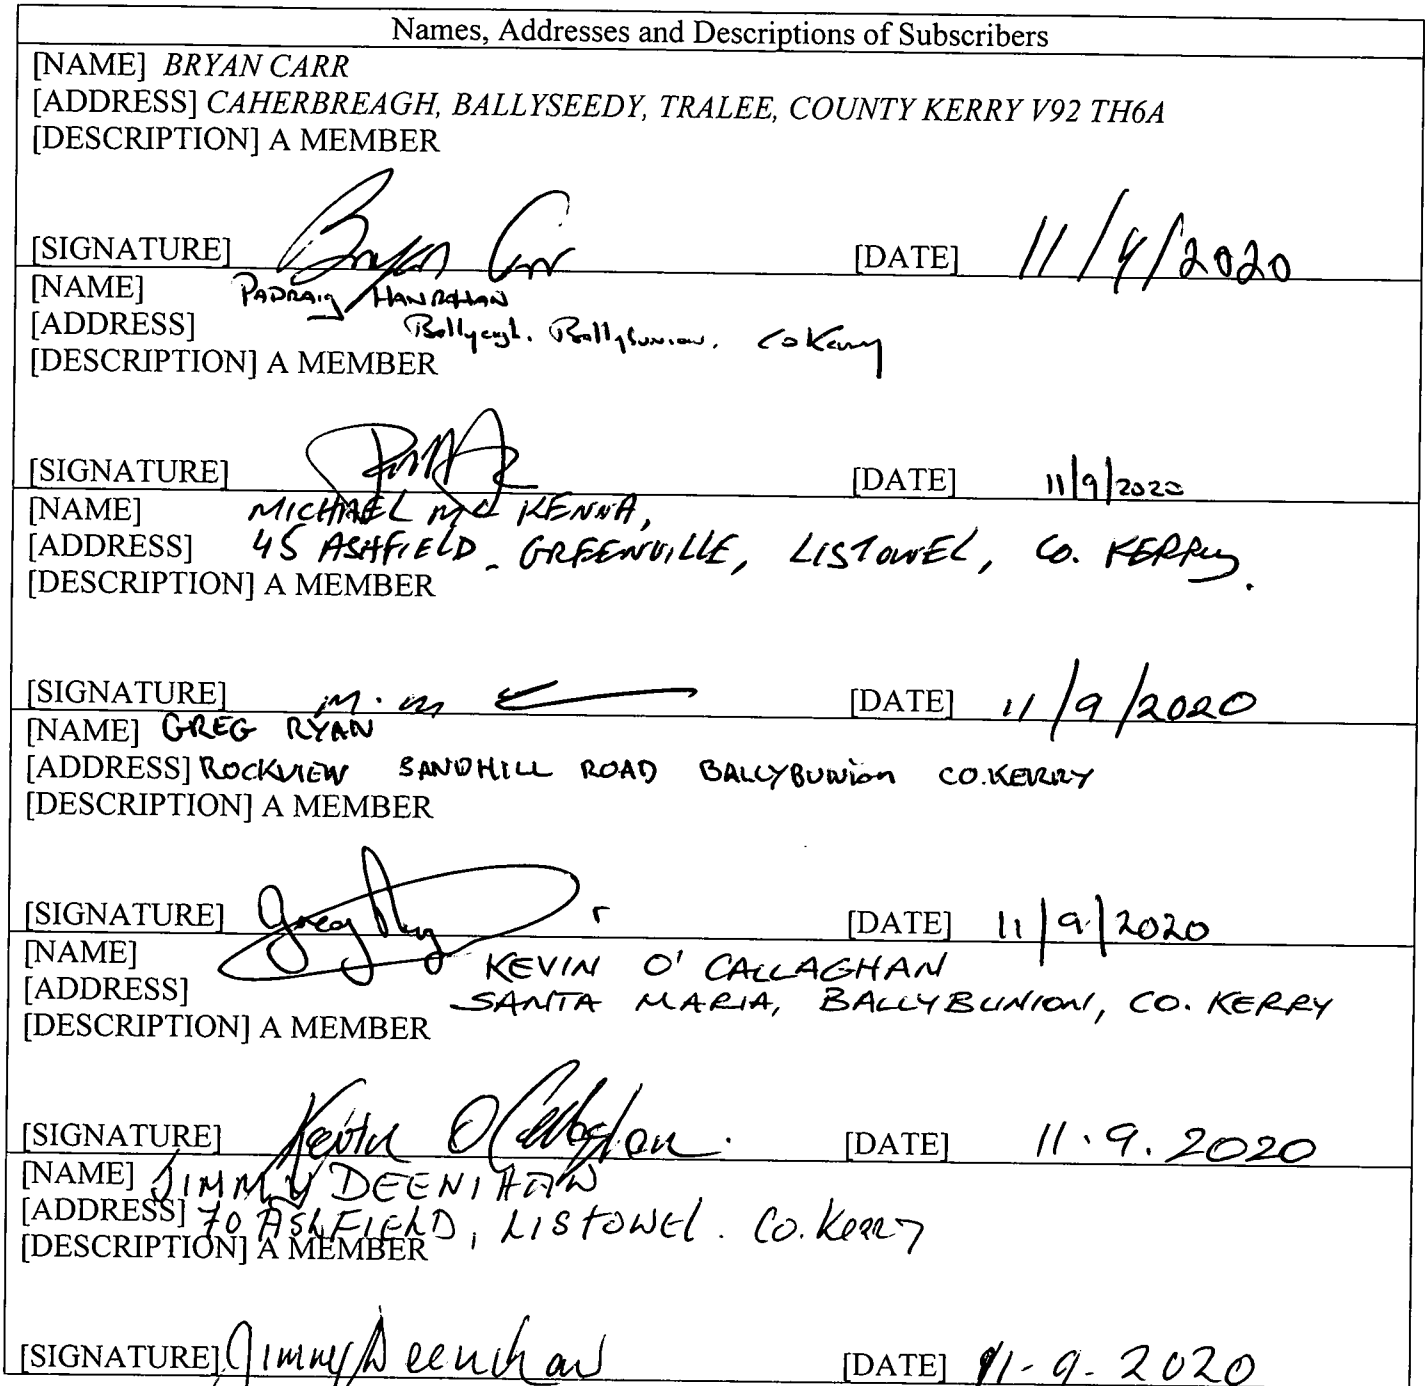 Names, Addresses and Descriptions of Subscribers
[NAME] BRYAN CARR
[ADDRESS] CAHERBREAGH, BALLYSEEDY, TRALEE, COUNTY KERRY V92 TH6A
[DESCRIPTION] A MEMBER
[SIGNATURE] Bryan Carr [DATE] 11/9/2020
[NAME] PADRAIG HANRAHAN
[ADDRESS] Ballybunion. Co Kerry
[DESCRIPTION] A MEMBER
[SIGNATURE] [DATE] 11/9/2020
[NAME] MICHAEL MC KENNA,
[ADDRESS] 45 ASHFIELD - GREENVILLE, LISTOWEL, CO. KERRY.
[DESCRIPTION] A MEMBER
[SIGNATURE] [DATE] 11/9/2020
[NAME] GREG RYAN
[ADDRESS] ROCKVIEW SANDHILL ROAD BALLYBUNION CO.KERRY
[DESCRIPTION] A MEMBER
[SIGNATURE] Greg Ryan [DATE] 11/9/2020
[NAME] KEVIN O' CALLAGHAN
[ADDRESS] SANTA MARIA, BALLYBUNION, CO. KERRY
[DESCRIPTION] A MEMBER
[SIGNATURE] Kevin O Callaghan. [DATE] 11.9.2020
[NAME] JIMMY DEENIHAN
[ADDRESS] 70 ASHFIELD, LISTOWEL. Co. Kerry
[DESCRIPTION] A MEMBER
[SIGNATURE] Jimmy Deenihan [DATE] 11-9-2020